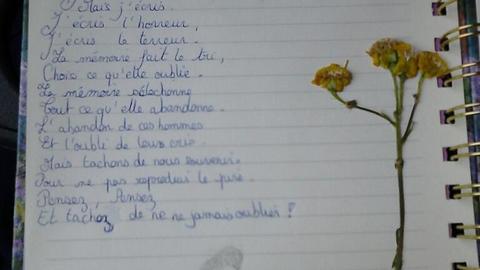 Mais j'écris.
J'écris l'horreur,
J'écris la terreur.
La mémoire fait le tri,
Choisi ce qu'elle oublie.
La mémoire sélectionne
Tout ce qu'elle abandonne.
L'abandon de ces hommes
Et l'oubli de leurs cris.
Mais tachons de nous souvenir.
Pour ne pas reproduir le pire.
Pensez, Pensez
Et tachez de ne ne jamais oublier !